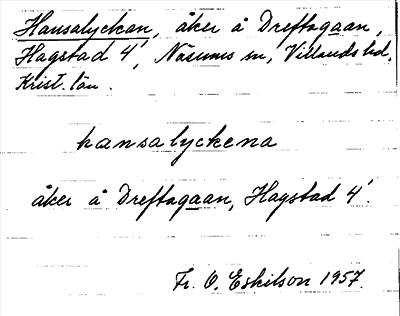 Hansalyckan, åker å Dreftagaan,
Hagstad 4', Näsums sn, Villands hd,
Krist. län.
hansalyckena
åker å Dreftagaan, Hagstad 4'.
Fr. O. Eskilson 1957.